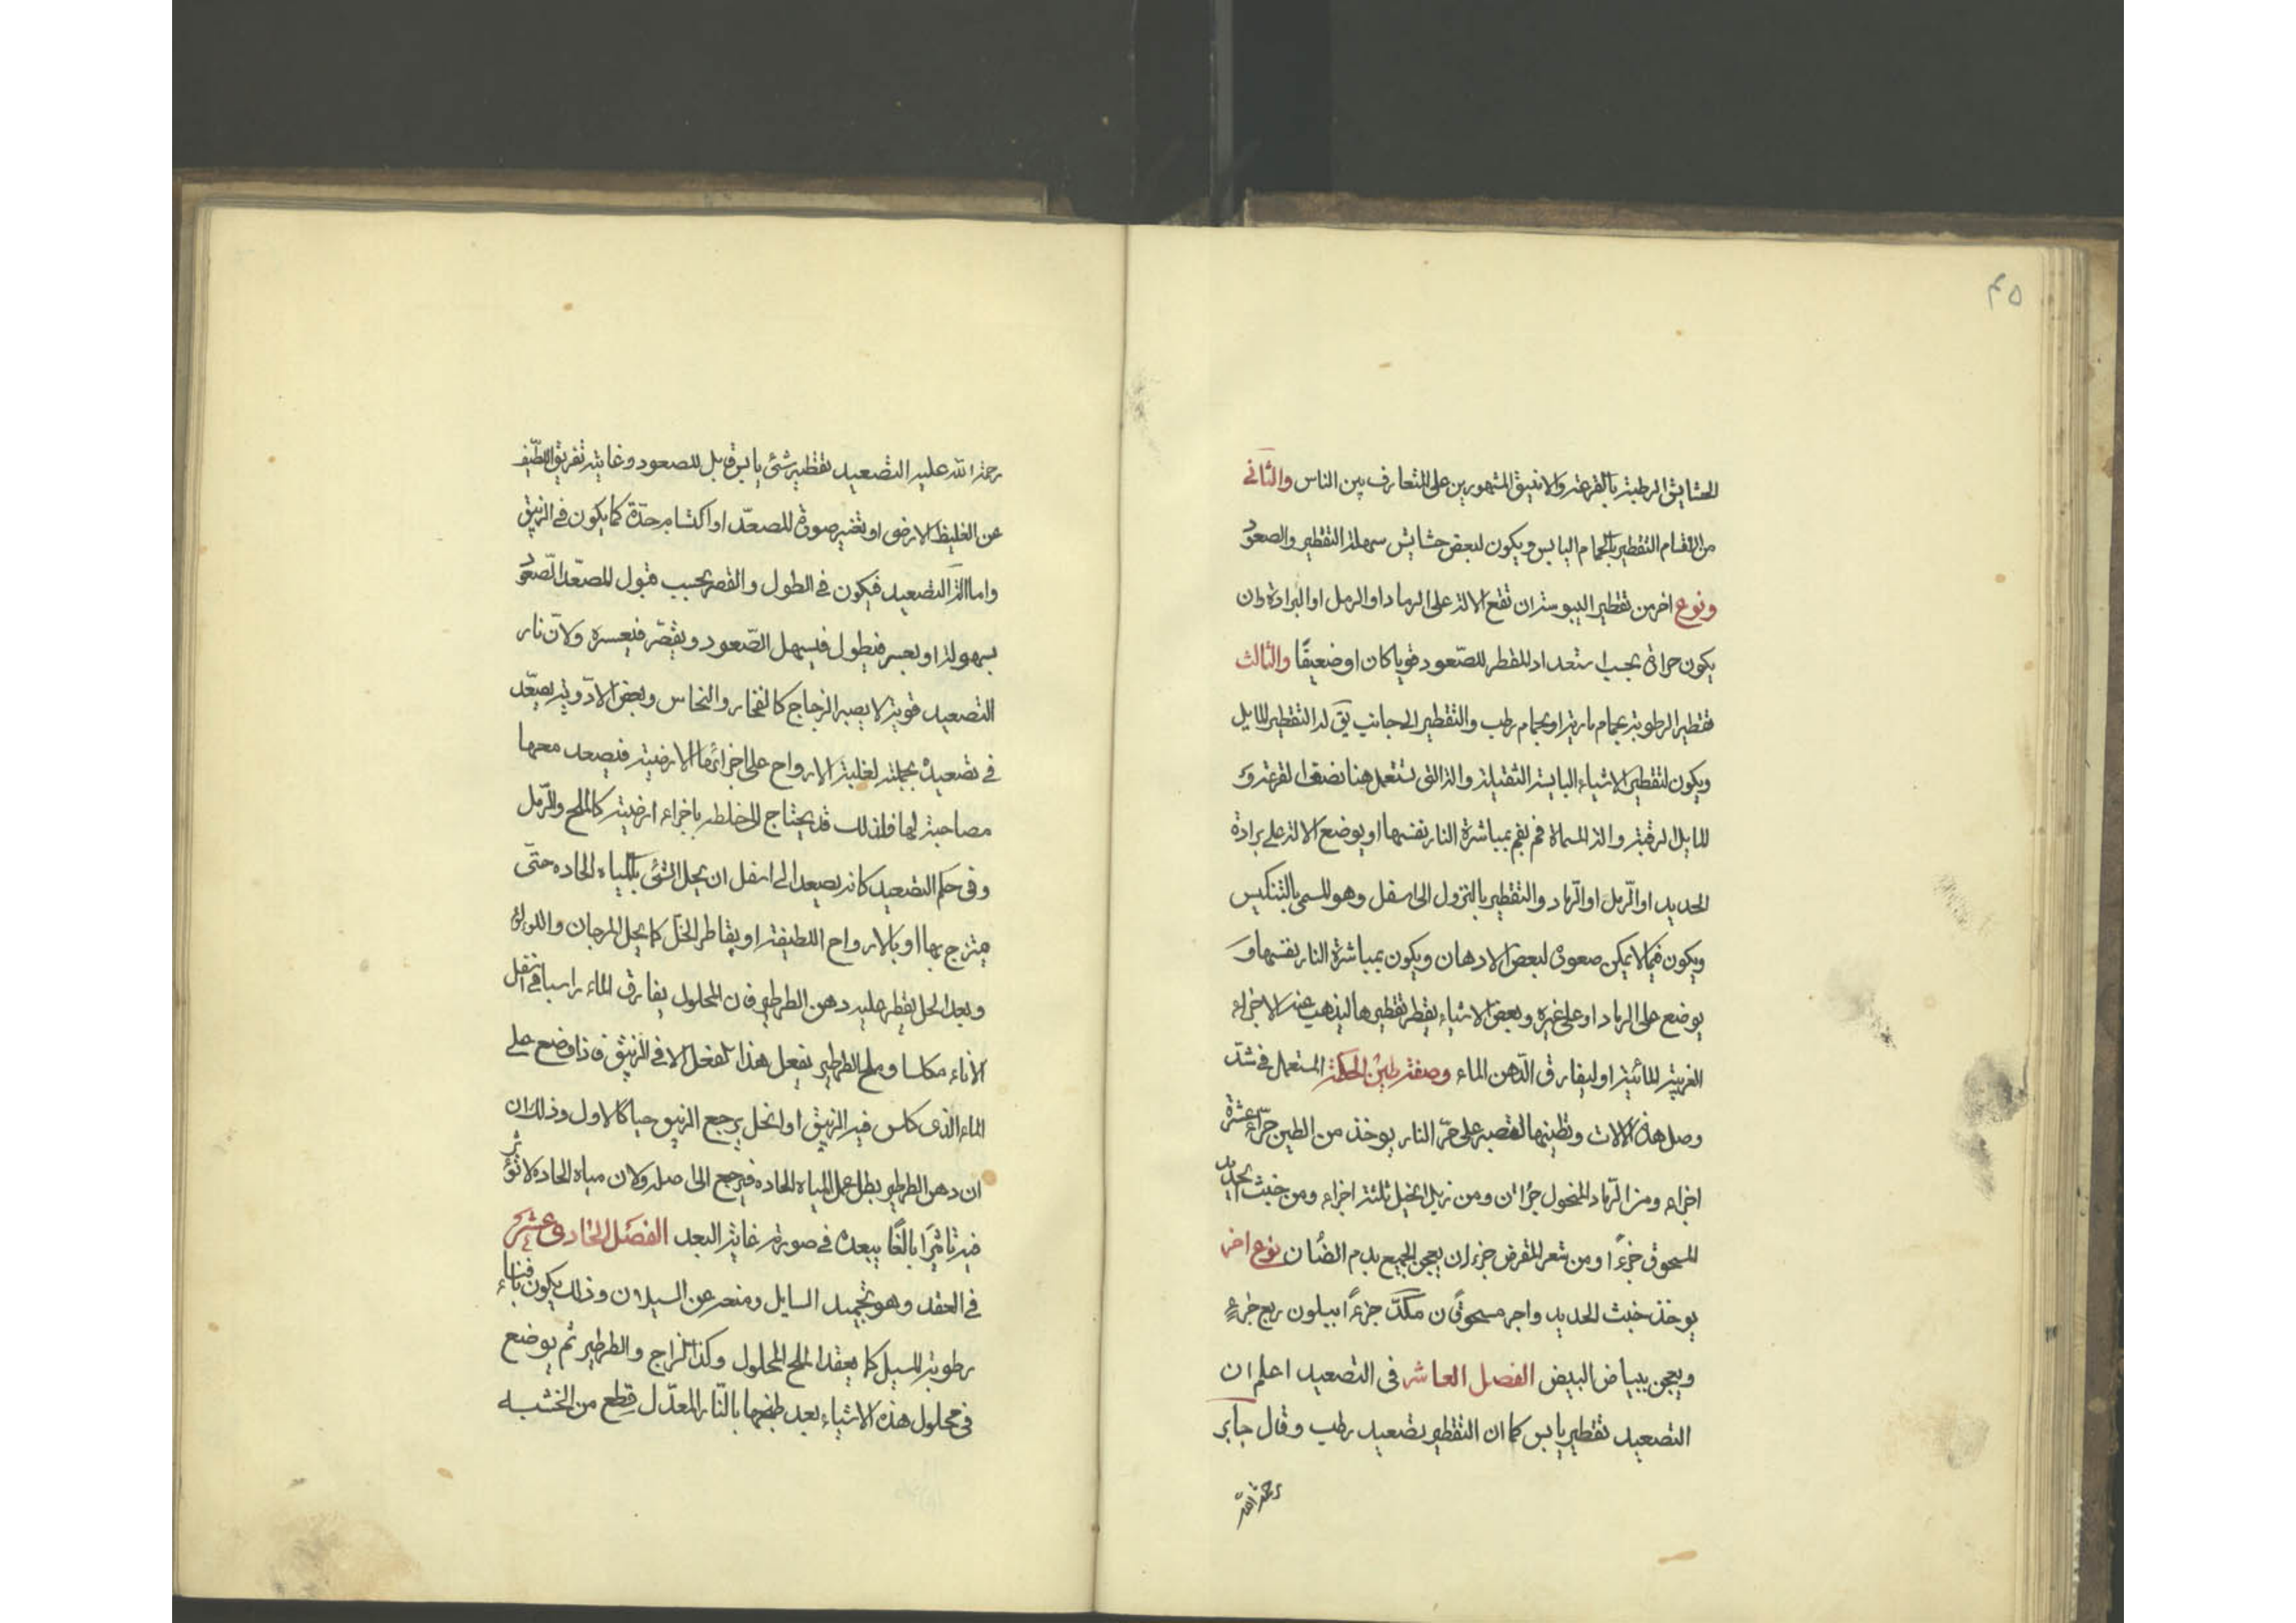 ٤٥
الحشايش الرطبة بالقرعة والانبيق المشهورين على المتعارف بين الناس والثاني
من اقسام التقطير بالحمام اليابس ويكون لبعض حشايش سهلة التقطير والصعود
ونوع اخر من تقطير اليبوسة ان تقع الالة على الرماد او الرمل او البرادة وان
يكون حرارته بحسب استعداد المقطر للصّعود قويا كان او ضعيفًا والثالث
تقطير الرطوبة بحمام مارية او بحمام رطب والتقطير الى جانب يق له التقطير المايل
ويكون لتقطير الاشياء اليابسة الثقيلة والة التى تستعمل هنا نصف القرعة و
المايل لرقبة والة المسماة فم بفم بمباشرة النار نفسها او يوضع الالة على برادة
الحديد او الرّمل او الرّماد والتقطير بالنزول الى اسفل وهو المسمى بالتنكيس
ويكون فيما لا يمكن صعوده لبعض الادهان ويكون بمباشرة النار بنفسها و
يوضع على الرماد او على غيره وبعض الاشياء يقطر تقطيرها ليذهب عنه الاجزاء
الغريبة المائية او ليفارق الدّهن الماء وصفة طين الحكمة المستعمل فى شدّ
وصل هذه الالات وتطينها لتصبر على حرّ النار يوخذ من الطين حرّ عشرة
اجزاء ومن الرّماد المنخول جزاان ومن زبل الخيل ثلثة اجزاء ومن خبث الحديد
المسحوق جزءًا ومن شعر المقرض جزءان يعجن الجميع بدم الضان نوع اخر
يوخذ خبث الحديد واجر مسحوقان من كلّ جزءًا ابيلون ربع جزءٍ
ويعجن ببياض البيض الفصل العاشر فى التصعيد اعلم ان
التصعيد تقطير يابس كما ان التقطير تصعيد رطب وقال جابر
رحمة الله
رحمة الله عليه التصعيد تقطير شئ يابس قابل للصعود وغايته تفريق اللطيف
عن الغليظ الارضى او تغيير صورة المصعّد او اكتسابه حدّة كما يكون فى الزيبق
واما الة التصعيد فيكون فى الطول والقصر بحسب قبول المصعّد الصّعود
بسهولة او بعسر فيطول فيسهل الصّعود ويقصّر فيعسره ولانّ نار
التصعيد قوية لا يصبر الزجاج كالفخار والنحاس وبعض الادوية يصعّد
فى تصعيده بجملته لغلبة الارواح على اجزائها الارضية فيصعد معها
مصاحبة لها فلذلك قد يحتاج الى خلطه باجزاء ارضية كالملح والرّمل
وفى حكم التصعيد كانه يصعد الى اسفل ان يحل الشئ بالمياه الحاده حتّى
يمتزج بها او بالارواح اللطيفة او يقاطر الخل كما يحل المرجان واللولؤ
وبعد الحل يقطر عليه دهن الطرطير فان المحلول يفارق الماء راسبا فى اسفل
الاناء مكلسا وملح الطرطير يفعل هذا الفعل الا فى الزيبق فاذا وضع على
الماء الذى كلس فيه الزيبق او انحل يرجع الزيبق حيا كالاول وذلك ان
ان دهن الطرطير يبطل عمل المياه الحاده فيرجع الى اصله ولان مياه الحاده لا تؤثر
فيه تاثيرًا بالغًا يبعده فى صورته غاية البعد الفصل الحادى عشر
فى العقد وهو تجميد السايل ومنعه عن السيلان وذلك يكون بافناء
رطوبة المسيل كما يعقد الملح المحلول وكذا الزاج والطرطير ثم يوضع
فى محلول هذه الاشياء بعد طبخها بالنّار المعدّل قطع من الخشبه